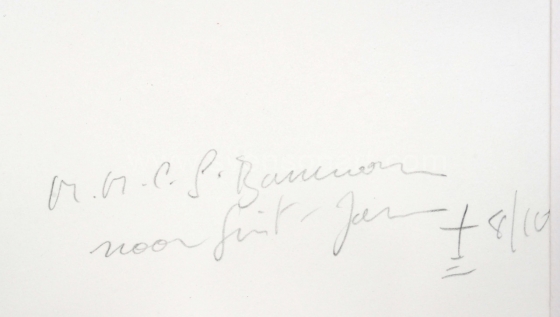 M.M.C.S.
voor Sint-Jan
8/10